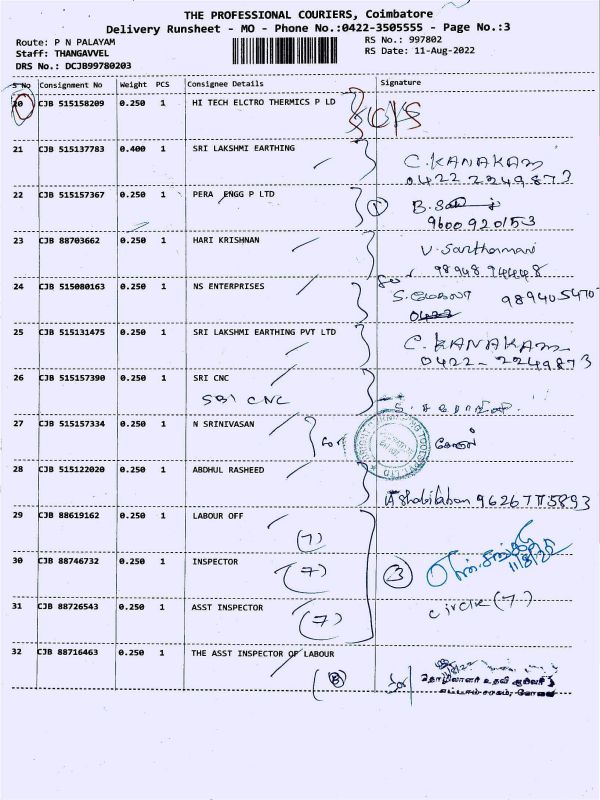 THE PROFESSIONAL COURIERS, Coimbatore
Delivery Runsheet - MO - Phone No.:0422-3505555 - Page No.:3
Route: P N PALAYAM
RS No.: 997802
Staff: THANGAVVEL
RS Date: 11-Aug-2022
DRS No.: DCJB99780203
S No Consignment No Weight PCS Consignee Details Signature
20 CJB 515158209 0.250 1 HI TECH ELCTRO THERMICS P LD
21 CJB 515137783 0.400 1 SRI LAKSHMI EARTHING
C. KANAKAM
0422 2249873
22 CJB 515157367 0.250 1 PERA ENGG P LTD
9600920153
23 CJB 88703662 0.250 1 HARI KRISHNAN
98948 94448
24 CJB 515080163 0.250 1 NS ENTERPRISES
989405470
0422
25 CJB 515131475 0.250 1 SRI LAKSHMI EARTHING PVT LTD
C. KANAKAM
0422-2249873
26 CJB 515157390 0.250 1 SRI CNC
SBI CNC
27 CJB 515157334 0.250 1 N SRINIVASAN
28 CJB 515122020 0.250 1 ABDHUL RASHEED
29 CJB 88619162 0.250 1 LABOUR OFF
(7)
30 CJB 88746732 0.250 1 INSPECTOR
(7) 3
11/8/22
31 CJB 88726543 0.250 1 ASST INSPECTOR
(7)
circle (7)
32 CJB 88716463 0.250 1 THE ASST INSPECTOR OF LABOUR
தொழிலாளர் உதவி ஆய்வர்